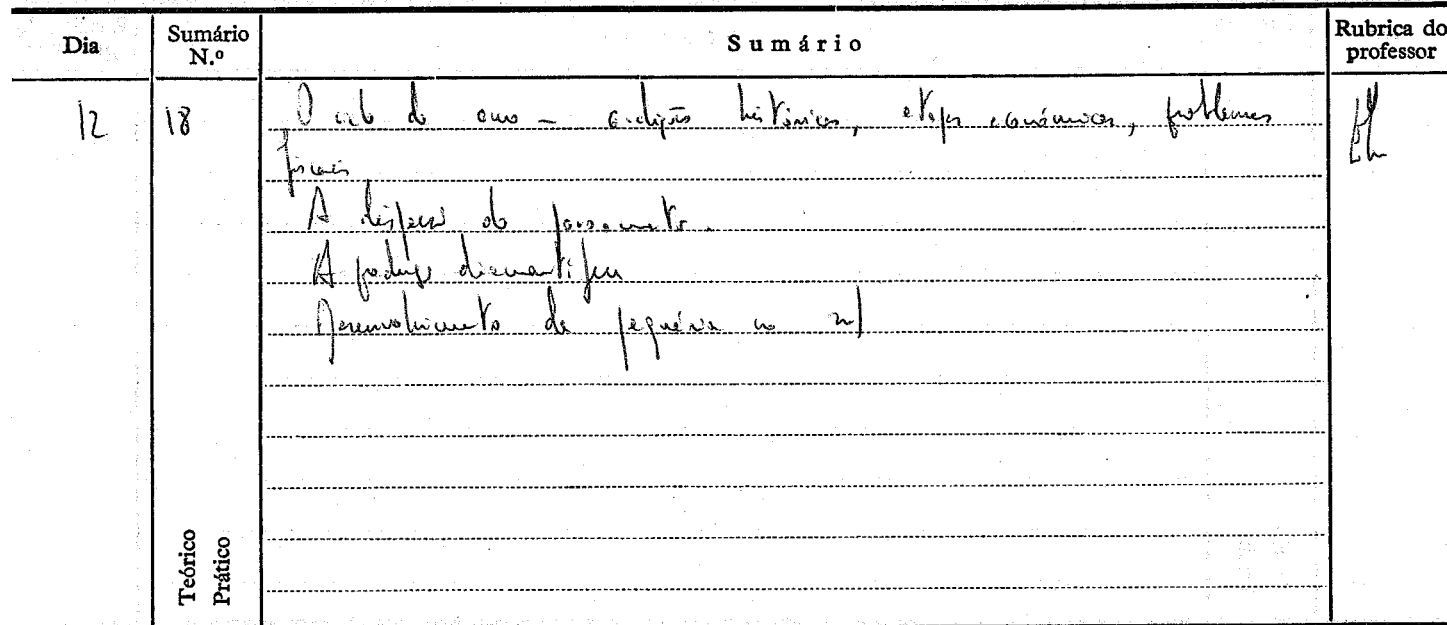 Dia
Sumário N.º
Sumário
Rubrica do professor
12
18
O ciclo do ouro – condições históricas, etapas económicas, problemas
fiscais
A do povoamento.
A produção diamantífera
Desenvolvimento da pecuária no
Teórico
Prático